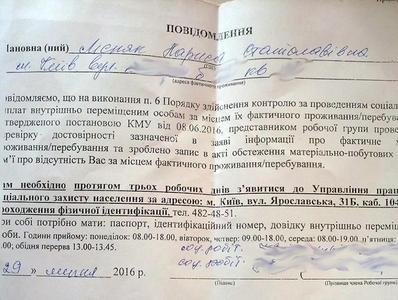 ПОВІДОМЛЕННЯ
Шановна (ний) Меняк Лариса Станіславівна
м. Київ вул.
(адреса фактичного проживання)
овідомляємо, що на виконання п. 6 Порядку здійснення контролю за проведенням соціал
плат внутрішньо переміщеним особам за місцем їх фактичного проживання/перебування
твердженого постановою КМУ від 08.06.2016, представником робочої групи прове
ревірку достовірності зазначеної в заяві інформації про фактичне
оживання/перебування та зроблено запис в акті обстеження матеріально-побутових
м'ї про відсутність Вас за місцем фактичного проживання/перебування.
ам необхідно протягом трьох робочих днів з'явитися до Управління прац
ціального захисту населення за адресою: м. Київ, вул. Ярославська, 31Б, каб. 104
роходження фізичної ідентифікації, тел. 482-48-51.
ри собі потрібно мати: паспорт, ідентифікаційний номер, довідку внутрішньо перемі
би. Години прийому: понеділок: 08.00-18.00, вівторок, четвер: 09.00-18.00, середа: 08.00-19.00, п'ятниця:
.00; обідня перерва 13.00-13.45.
29 » липня 2016 р.
(Підпис) (Прізвище члена Робочої групи)